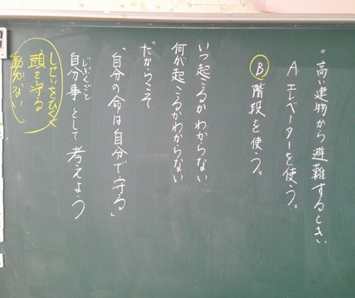 "高い建物から避難するとき、
A エレベーターを使う。
Ⓑ 階段を使う。
いつ起こるかわからない
何が起こるかわからない
だからこそ
「自分の命は自分で守る」
じぶんごと
自分事として考えよう
しせいをひくく
頭を守る
動かない